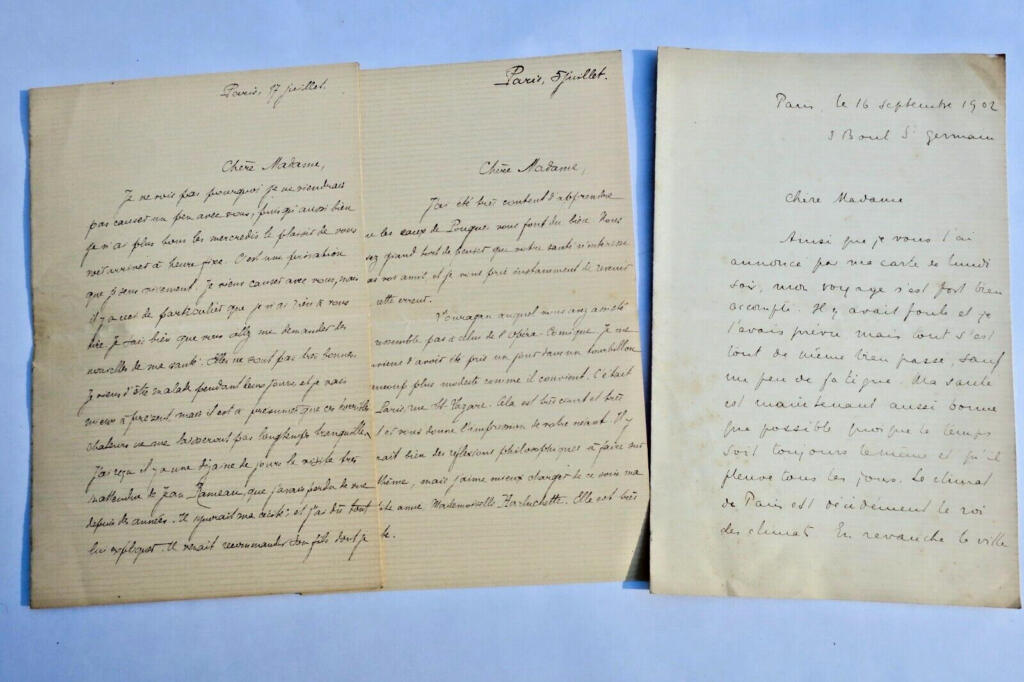 Paris, 17 juillet.
Chère Madame,
Je ne vois pas pourquoi je ne viendrais
pas causer un peu avec vous, puis qu'aussi bien
je n'ai plus tous les mercredis le plaisir de vous
voir arriver à heure fixe. C'est une privation
que je sens vivement. Je viens causer avec vous, mais
il y a ceci de particulier que je n'ai rien à vous
dire. Je sais bien que vous allez me demander des
nouvelles de ma santé. Elles ne sont pas très bonnes.
Je viens d'être malade pendant deux jours et je vais
mieux à présent mais il est à présumer que ces
chaleurs ne me laisseront pas longtemps tranquille.
J'ai reçu il y a une dizaine de jours la visite très
inattendue de Jean Rameau, que j'avais perdu de vue
depuis des années. Il ignorait ma cécité et j'ai dû tout
lui expliquer. Il venait recommander son fils dont je
Paris, 5 juillet.
Chère Madame,
J'ai été très content d'apprendre
que les eaux de Pougue vous font du bien. Vous
avez grand tort de penser que votre santé n'intéresse
vos amis et je vous prie instamment de revenir
cette erreur.
L'ouragan auquel vous avez assisté
ressemble pas à celui de l'Opéra-Comique. Je me
viens d'avoir été pris un jour dans un tourbillon
plus modeste comme il convient. C'était
Paris, rue St Lazare. Cela est très court et très
et vous donne l'impression de votre néant. Il y
rait bien des réflexions philosophiques à faire sur
thème, mais j'aime mieux charger de ce soin ma
te amie, Mademoiselle. Elle est très
te.
Paris, le 16 septembre 1902
3 Boul St Germain
Chère Madame
Ainsi que je vous l'ai
annoncé par ma carte de lundi
soir, mon voyage s'est fort bien
accompli. Il y avait foule et je
l'avais prévu mais tout s'est
tout de même bien passé, sauf
un peu de fatigue. Ma santé
est maintenant aussi bonne
que possible quoique le temps
soit toujours le même et qu'il
pleuve tous les jours. Le climat
de Paris est décidément le roi
des climats. En revanche la ville